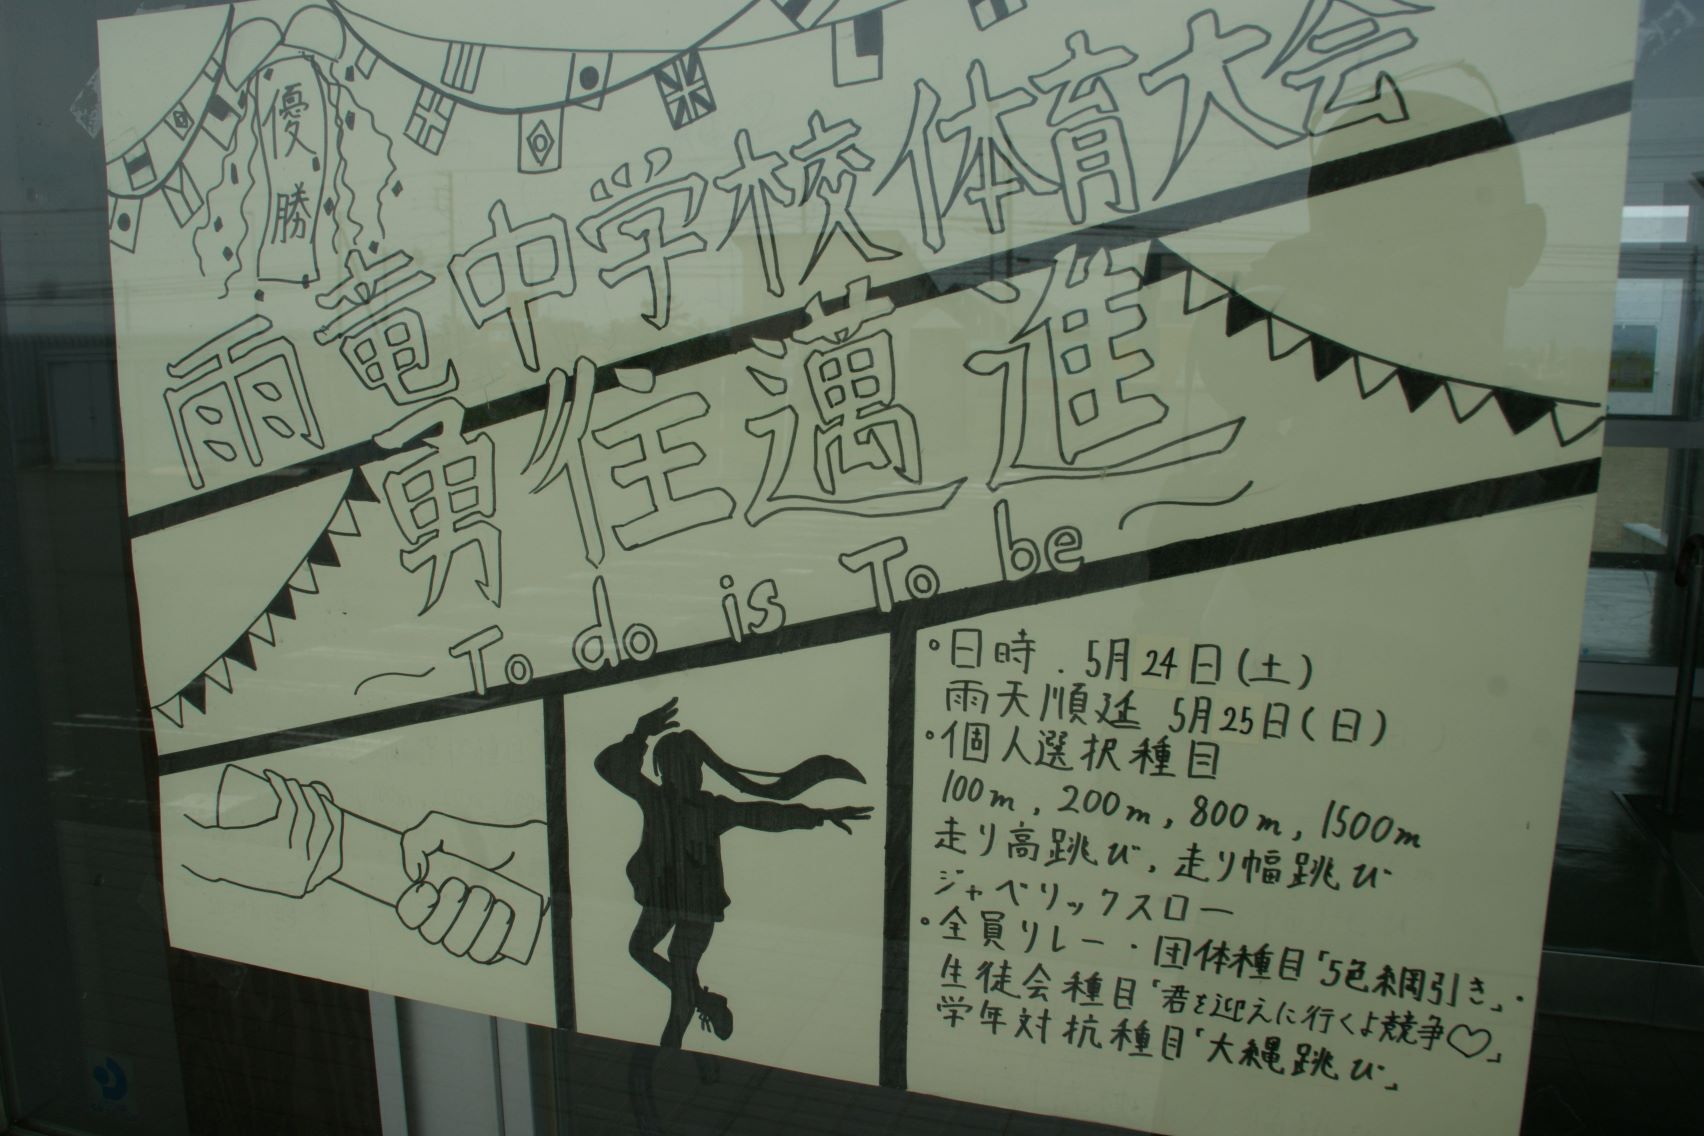 優勝
雨竜中学校体育大会
勇往邁進
～To do is To be～
・日時.5月24日(土)
雨天順延 5月25日(日)
・個人選択種目
100m, 200m, 800m, 1500m
走り高跳び, 走り幅跳び
ジャベリックスロー
・全員リレー・団体種目「5色綱引き」・
生徒会種目「君を迎えに行くよ競争♡」
学年対抗種目「大縄跳び」